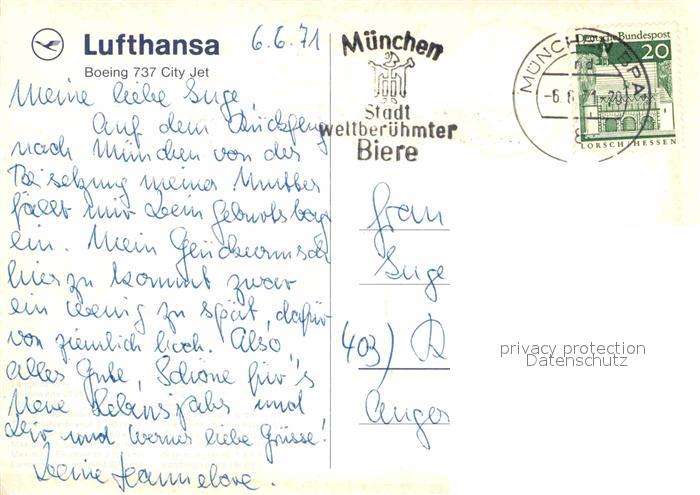 Lufthansa
Boeing 737 City Jet
6.6.71
Meine liebe Inge,
Auf dem Rückflug
nach München von der
Beisetzung meiner Mutter
fällt mir Dein Geburtstag
ein. Mein Glückwunsch
hierzu kommt zwar
ein wenig zu spät, dafür
von ziemlich hoch. Also,
alles Gute, Schöne für's
Neue Lebensjahr und
Dir und Werner liebe Grüsse!
Deine Hannelore.
München
Stadt
weltberühmter
Biere
MÜNCHEN BPA
-6.6.71-20
Deutsche Bundespost
20
LORSCH/HESSEN
Frau
Inge
403) R
Anger
privacy protection
Datenschutz